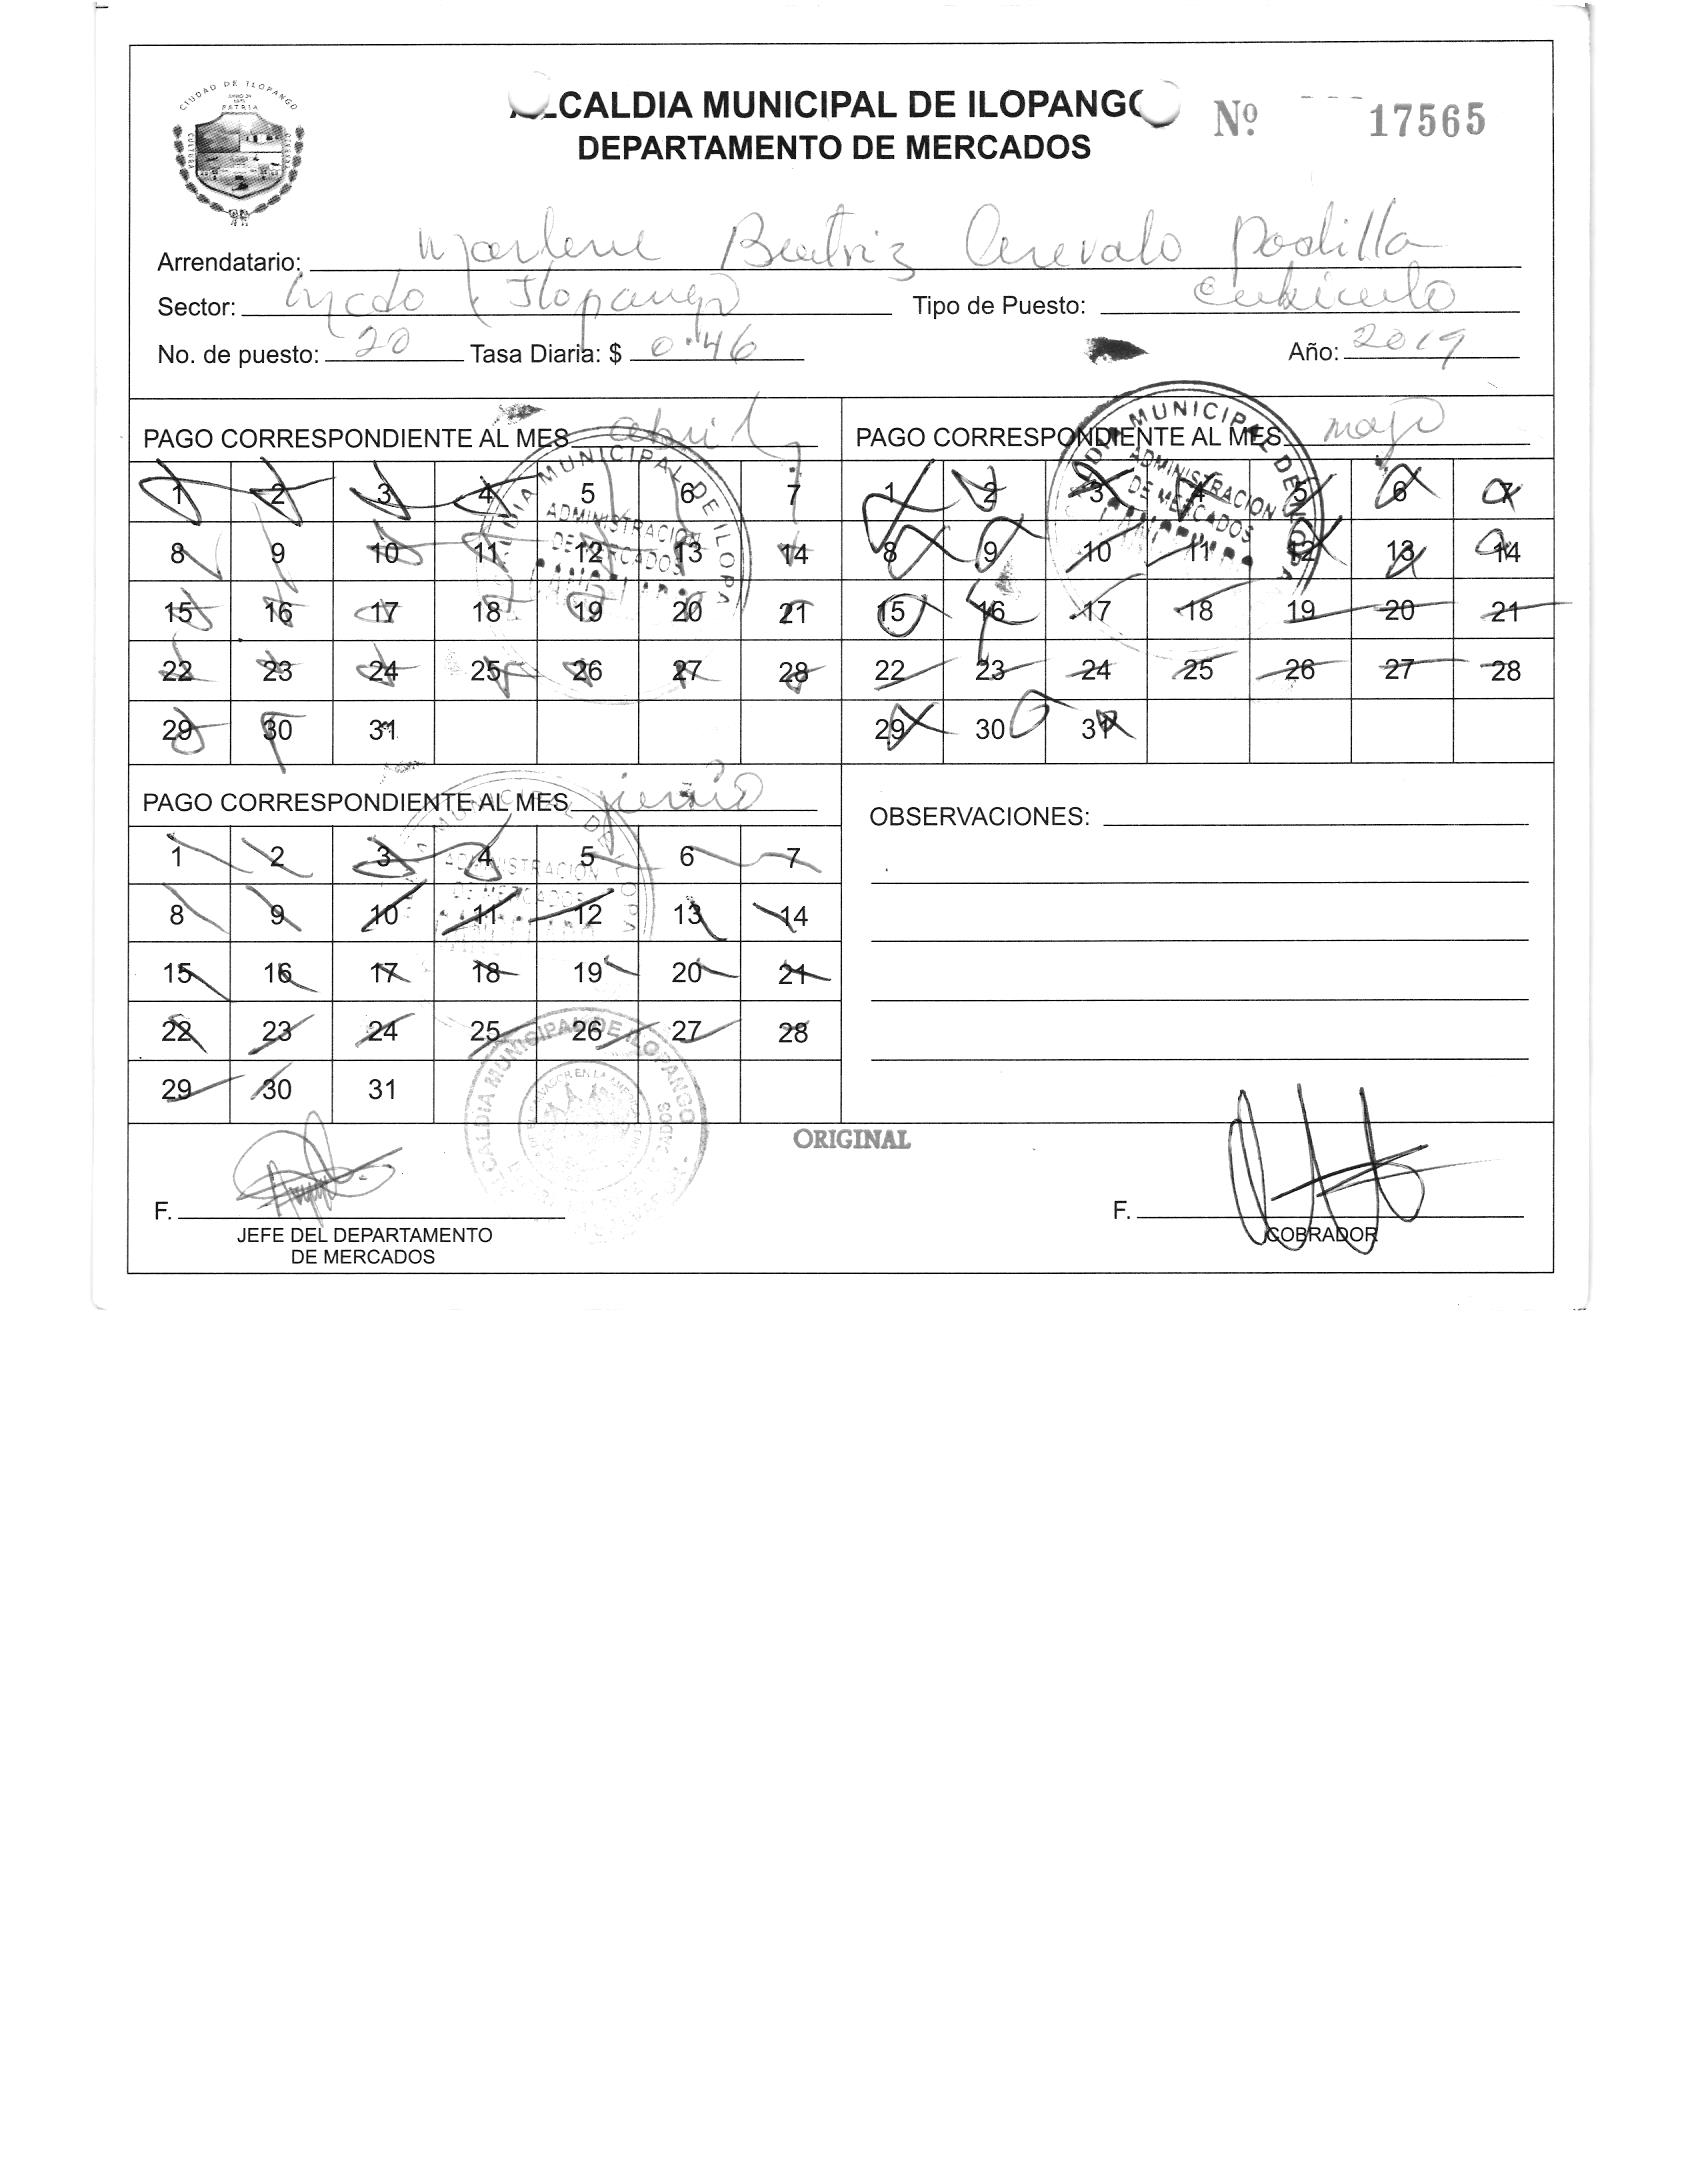 CIUDAD DE ILOPANGO
PATRIA
CULTURA
ALCALDIA MUNICIPAL DE ILOPANGO
DEPARTAMENTO DE MERCADOS
Nº 17565
Arrendatario: Marlene Beatriz Arevalo Padilla
Sector: Mcdo Ilopango Tipo de Puesto: Cubiculo
No. de puesto: 20 Tasa Diaria: $ 0.46 Año: 2019
PAGO CORRESPONDIENTE AL MES abril
1 2 3 4 5 6 7
8 9 10 11 12 13 14
15 16 17 18 19 20 21
22 23 24 25 26 27 28
29 30 31
MUNICIPAL DE ILOPA
ADMINISTRACION
DE MERCADOS
PAGO CORRESPONDIENTE AL MES mayo
1 2 3 4 5 6 7
8 9 10 11 12 13 14
15 16 17 18 19 20 21
22 23 24 25 26 27 28
29 30 31
MUNICIPAL DE
ADMINISTRACION
DE MERCADOS
PAGO CORRESPONDIENTE AL MES junio
1 2 3 4 5 6 7
8 9 10 11 12 13 14
15 16 17 18 19 20 21
22 23 24 25 26 27 28
29 30 31
MUNICIPAL DE ILOPA
ADMINISTRACION
DE MERCADOS
OBSERVACIONES:
ALCALDIA MUNICIPAL DE ILOPANGO
ORIGINAL
F.
JEFE DEL DEPARTAMENTO
DE MERCADOS
F.
COBRADOR